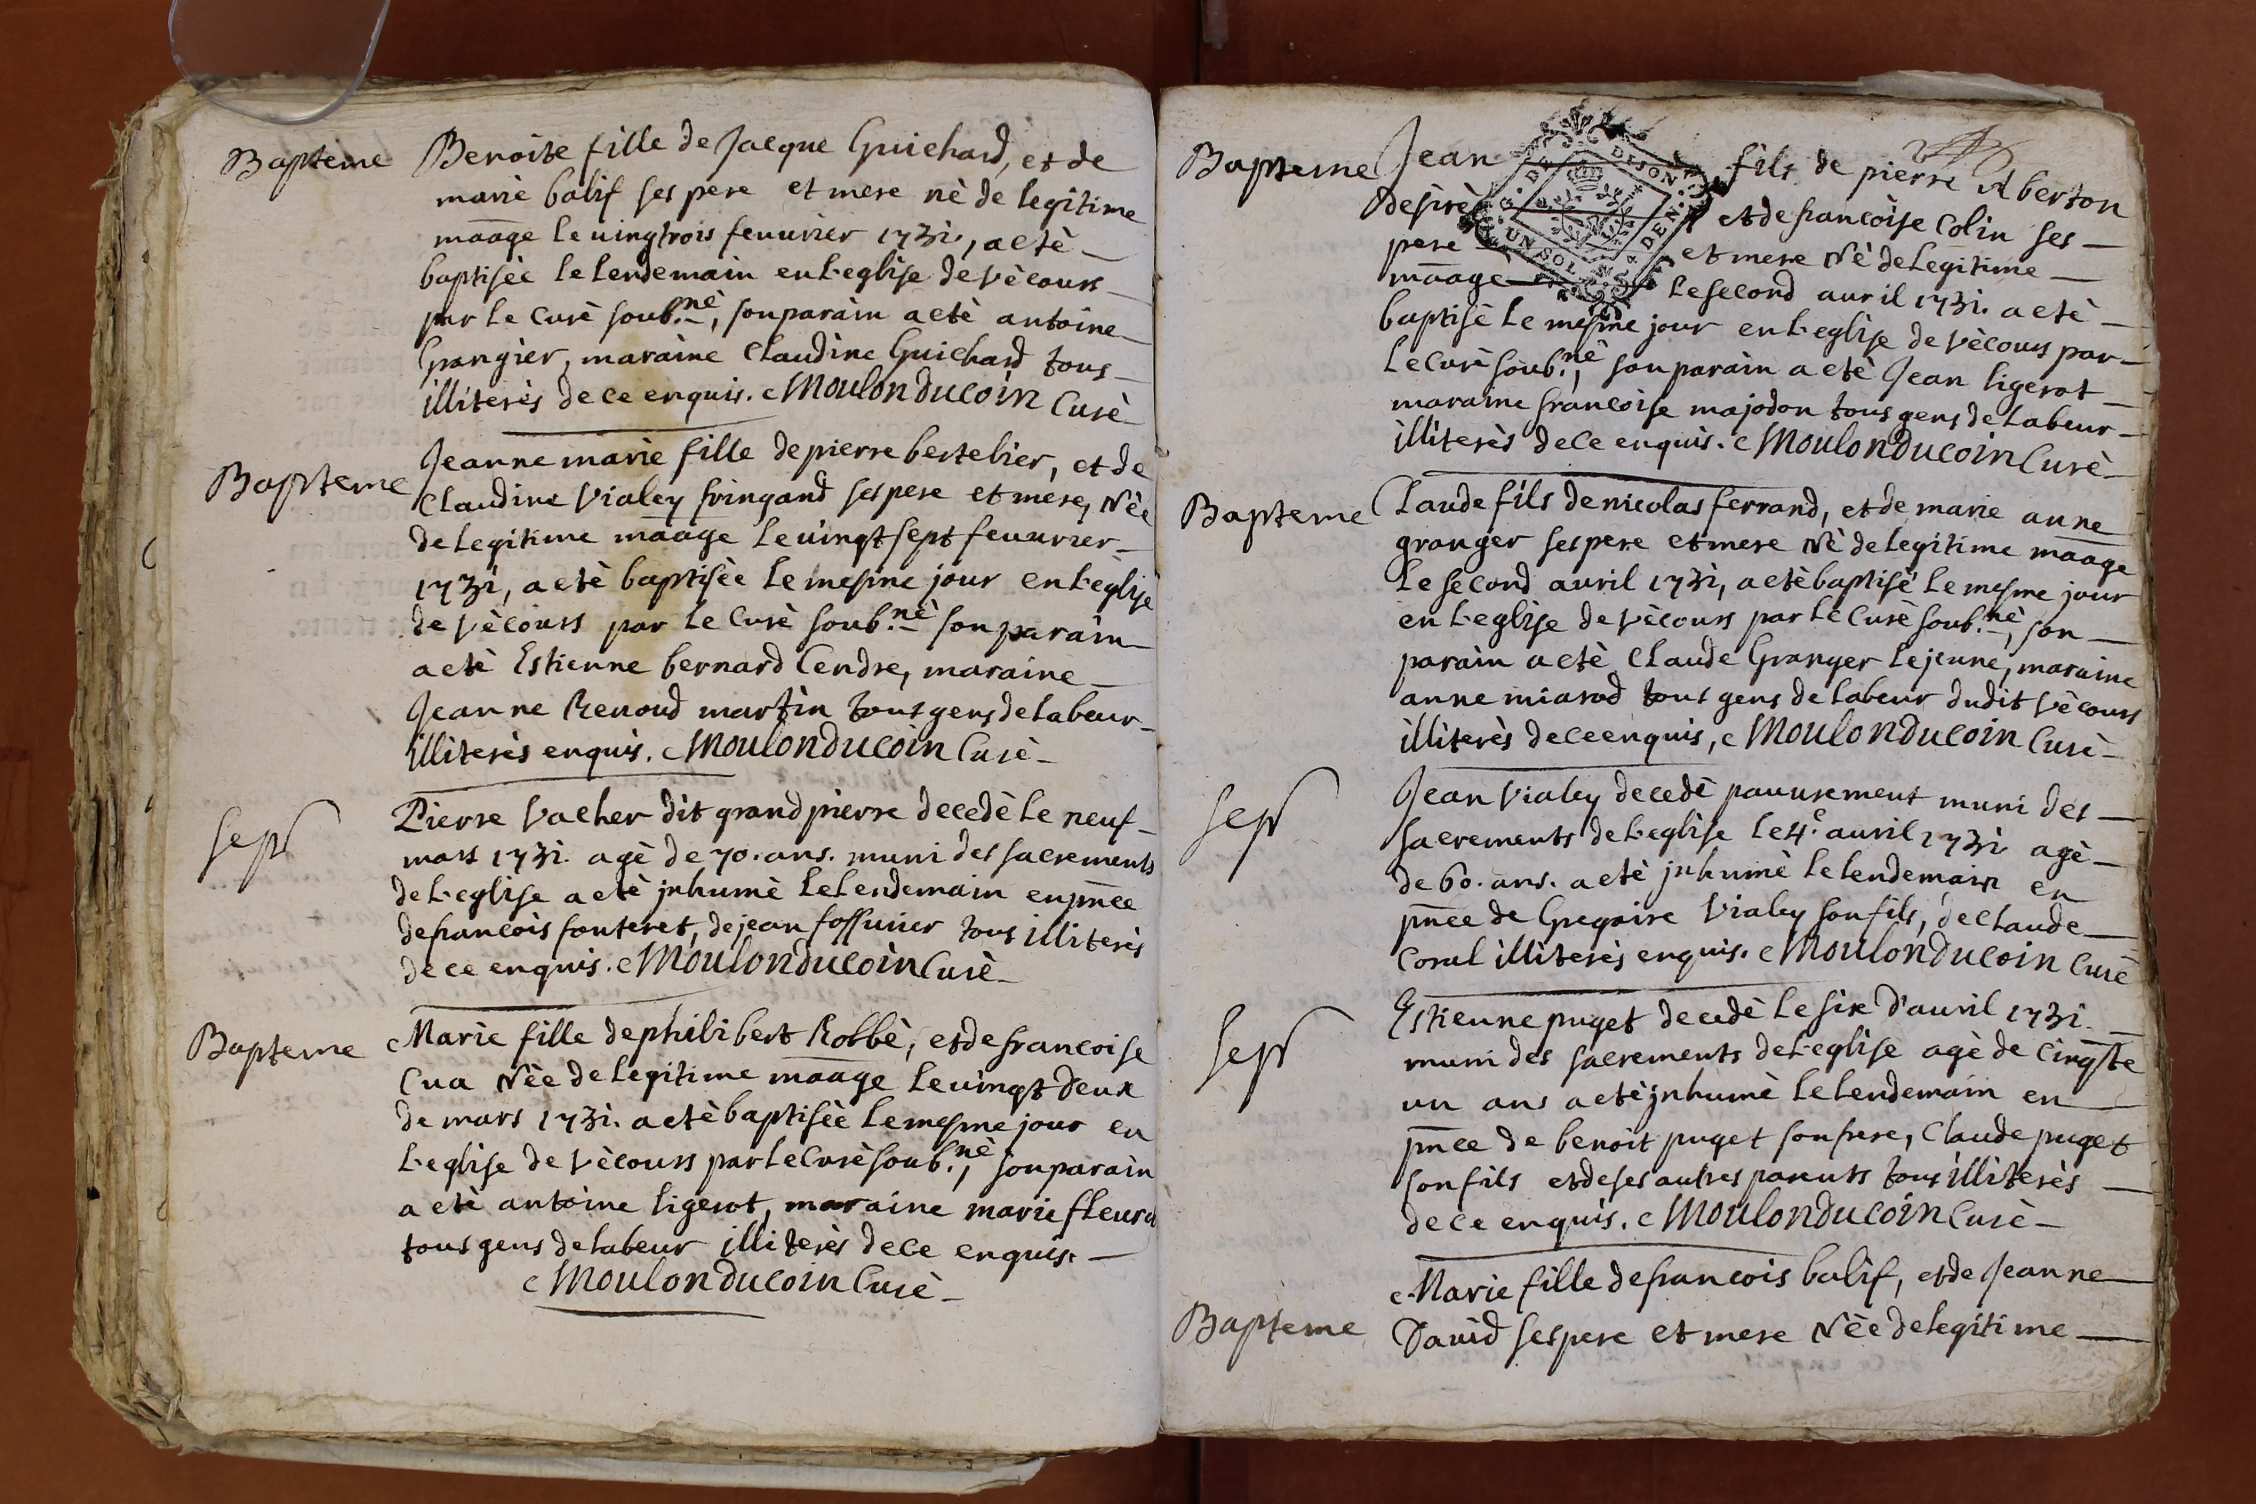 Bapteme
Benoite fille de Jacque Guichard, et de
marie balif ses pere et mere nè de legitime
maage le uingtrois feuurier 1731, a etè
baptisèe le lendemain en l'eglise de vècours
par le curè soub.nè, son parain a etè antoine
Grangier, maraine Claudine Guichard tous
illiterès de ce enquis. Moulon Ducoin Curè
Bapteme
Jeanne marie fille de pierre bertelier, et de
Claudine Vialey fringand ses pere et mere, Nèe
de legitime maage le uingt sept feuurier
1731, a etè baptisèe le mesme jour en l'eglise
de vècours par le Curè soub.nè son parain
a etè Estienne bernard Cendre, maraine
Jeanne Renoud martin tous gens de labeur
illiterès enquis. Moulon Ducoin Curè
sepr
Pierre Vacher dit grand pierre decedè le neuf
mars 1731. agè de 70. ans. muni des sacrements
de l'eglise a etè jnhumè le lendemain en pnce
de francois fonteret, de jean fossurier tous illiterès
de ce enquis. Moulon Ducoin Curè
Bapteme
Marie fille de philibert Robbè, et de francoise
Cua Nèe de legitime maage le uingt deux
de mars 1731. a etè baptisèe le mesme jour en
l'eglise de vècours par le Curè soub.nè, son parain
a etè antoine ligerot, maraine marie fleura
tous gens de labeur illiterès de ce enquis.
Moulon Ducoin Curè
Bapteme
Jean fils de pierre Alberton
Desirè et de francoise Colin ses
pere et mere Nè de legitime
maage le second auril 1731. a etè
G. DE DIJON
UN SOL 4 DEN.
baptisè le mesme jour en l'eglise de vècours par
le Curè soub.nè, son parain a etè Jean ligerot
maraine francoise majodon tous gens de labeur
illiterès de ce enquis. Moulon Ducoin Curè
Bapteme
Claude fils de nicolas ferrand, et de marie anne
granger ses pere et mere Nè de legitime maage
le second avril 1731, a etè baptisè le mesme jour
en l'eglise de vècours par le Curè soub.nè, son
parain a etè Claude Granger le jeune, maraine
anne miarod tous gens de labeur dudit vècours
illiterès de ce enquis, Moulon Ducoin Curè
sepr
Jean Vialey decedè pauurement muni des
sacrements de l'eglise le 4.e auril 1731 agè
de 60. ans. a etè jnhumè le lendemain en
pnce de Gregoire Vialey son fils, de Claude
Coral illiterès enquis. Moulon Ducoin Curè
sepr
Estienne puget decedè le six d'auril 1731.
muni des sacrements de l'eglise agè de Cinqte
un ans a etè jnhumè le lendemain en
pnce de benoit puget son frere, Claude puget
son fils et de ses autres parents tous illiterès
de ce enquis. Moulon Ducoin Curè
Bapteme
Marie fille de francois balif, et de Jeanne
David ses pere et mere Nèe de legitime